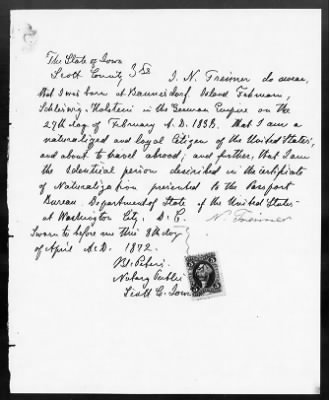 The State of Iowa
Scott County } SS
I. N. Treimer do swear,
that I was born at Bannesdorf, Island Fehmarn,
Schleswig-Holstein in the German Empire on the
27th day of February A.D. 1838. That I am a
naturalized and loyal Citizen of the United States,
and about to travel abroad; and further, that I am
the identical person described in the certificate
of Naturalization presented to the Passport
Bureau Department of State of the United States
at Washington City, D.C.
N. Treimer
Sworn to before me this 8th day
of April A.D. 1872.
Peters
Notary Public
Scott C. Iowa